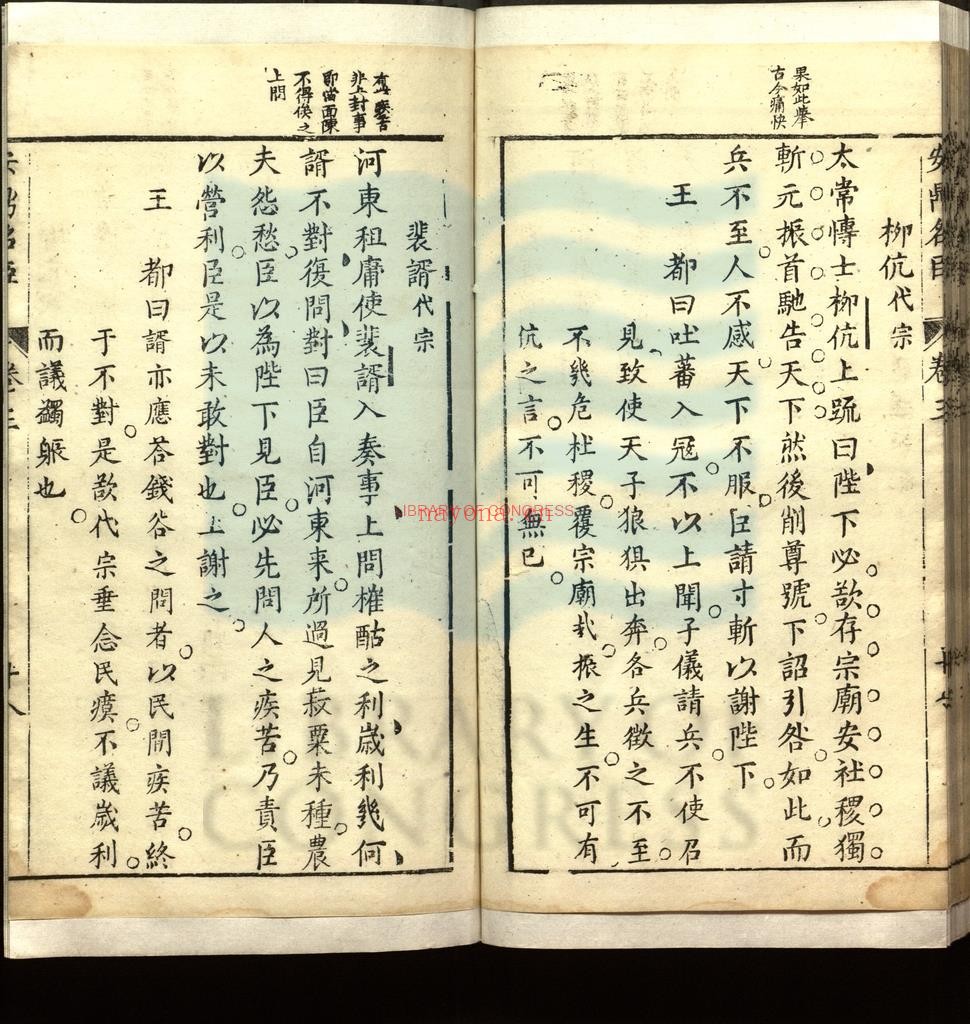 果如此舉
古今痛快
柳伉代宗
太常博士柳伉上疏曰陛下必欲存宗廟安社稷獨
斬元振首馳告天下然後削尊號下詔引咎如此而
兵不至人不感天下不服臣請寸斬以謝陛下
王 都曰吐蕃入冦不以上聞子儀請兵不使召
見致使天子狼狽出奔各兵徵之不至
不幾危社稷覆宗廟㢤振之生不可有
伉之言不可無已
有
非上封事
即當面陳
不得俟之
上問
裴諝代宗
河東租庸使裴諝入奏事上問榷酤之利歲利幾何
諝不對復問對曰臣自河東来所過見菽粟未種農
夫怨愁臣以為陛下見臣必先問人之疾苦乃責臣
以營利臣是以未敢對也上謝之
王 都曰諝亦應荅錢谷之問者以民間疾苦終
于不對是欲代宗垂念民瘼不議歲利
而議蠲賑也
卷三
十八
LIBRARY OF CONGRESS
nayona.cn
LIBRARY OF
CONGRESS